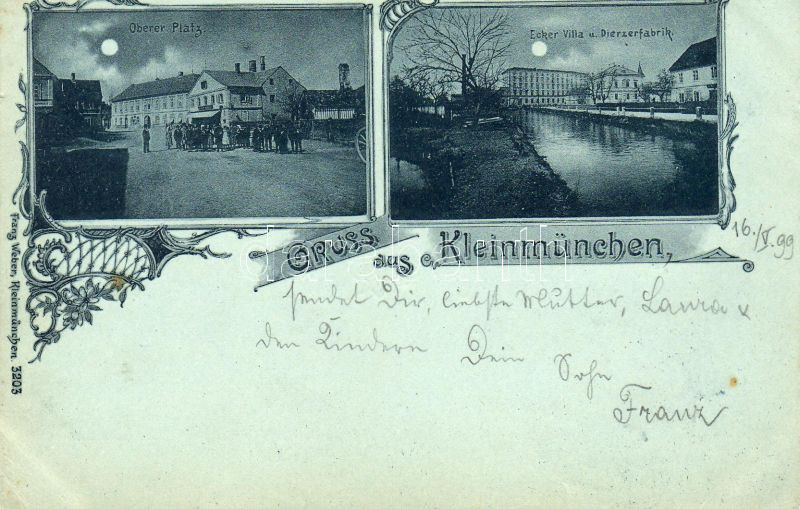 Oberer Platz
Ecker Villa u. Dierzerfabrik.
Gruss
aus
Kleinmünchen,
16./V. 99
sendet Dir, liebste Mutter, Laura &
den Kindern Dein Sohn
Franz
Franz Weber, Kleinmünchen. 3203
darabanth